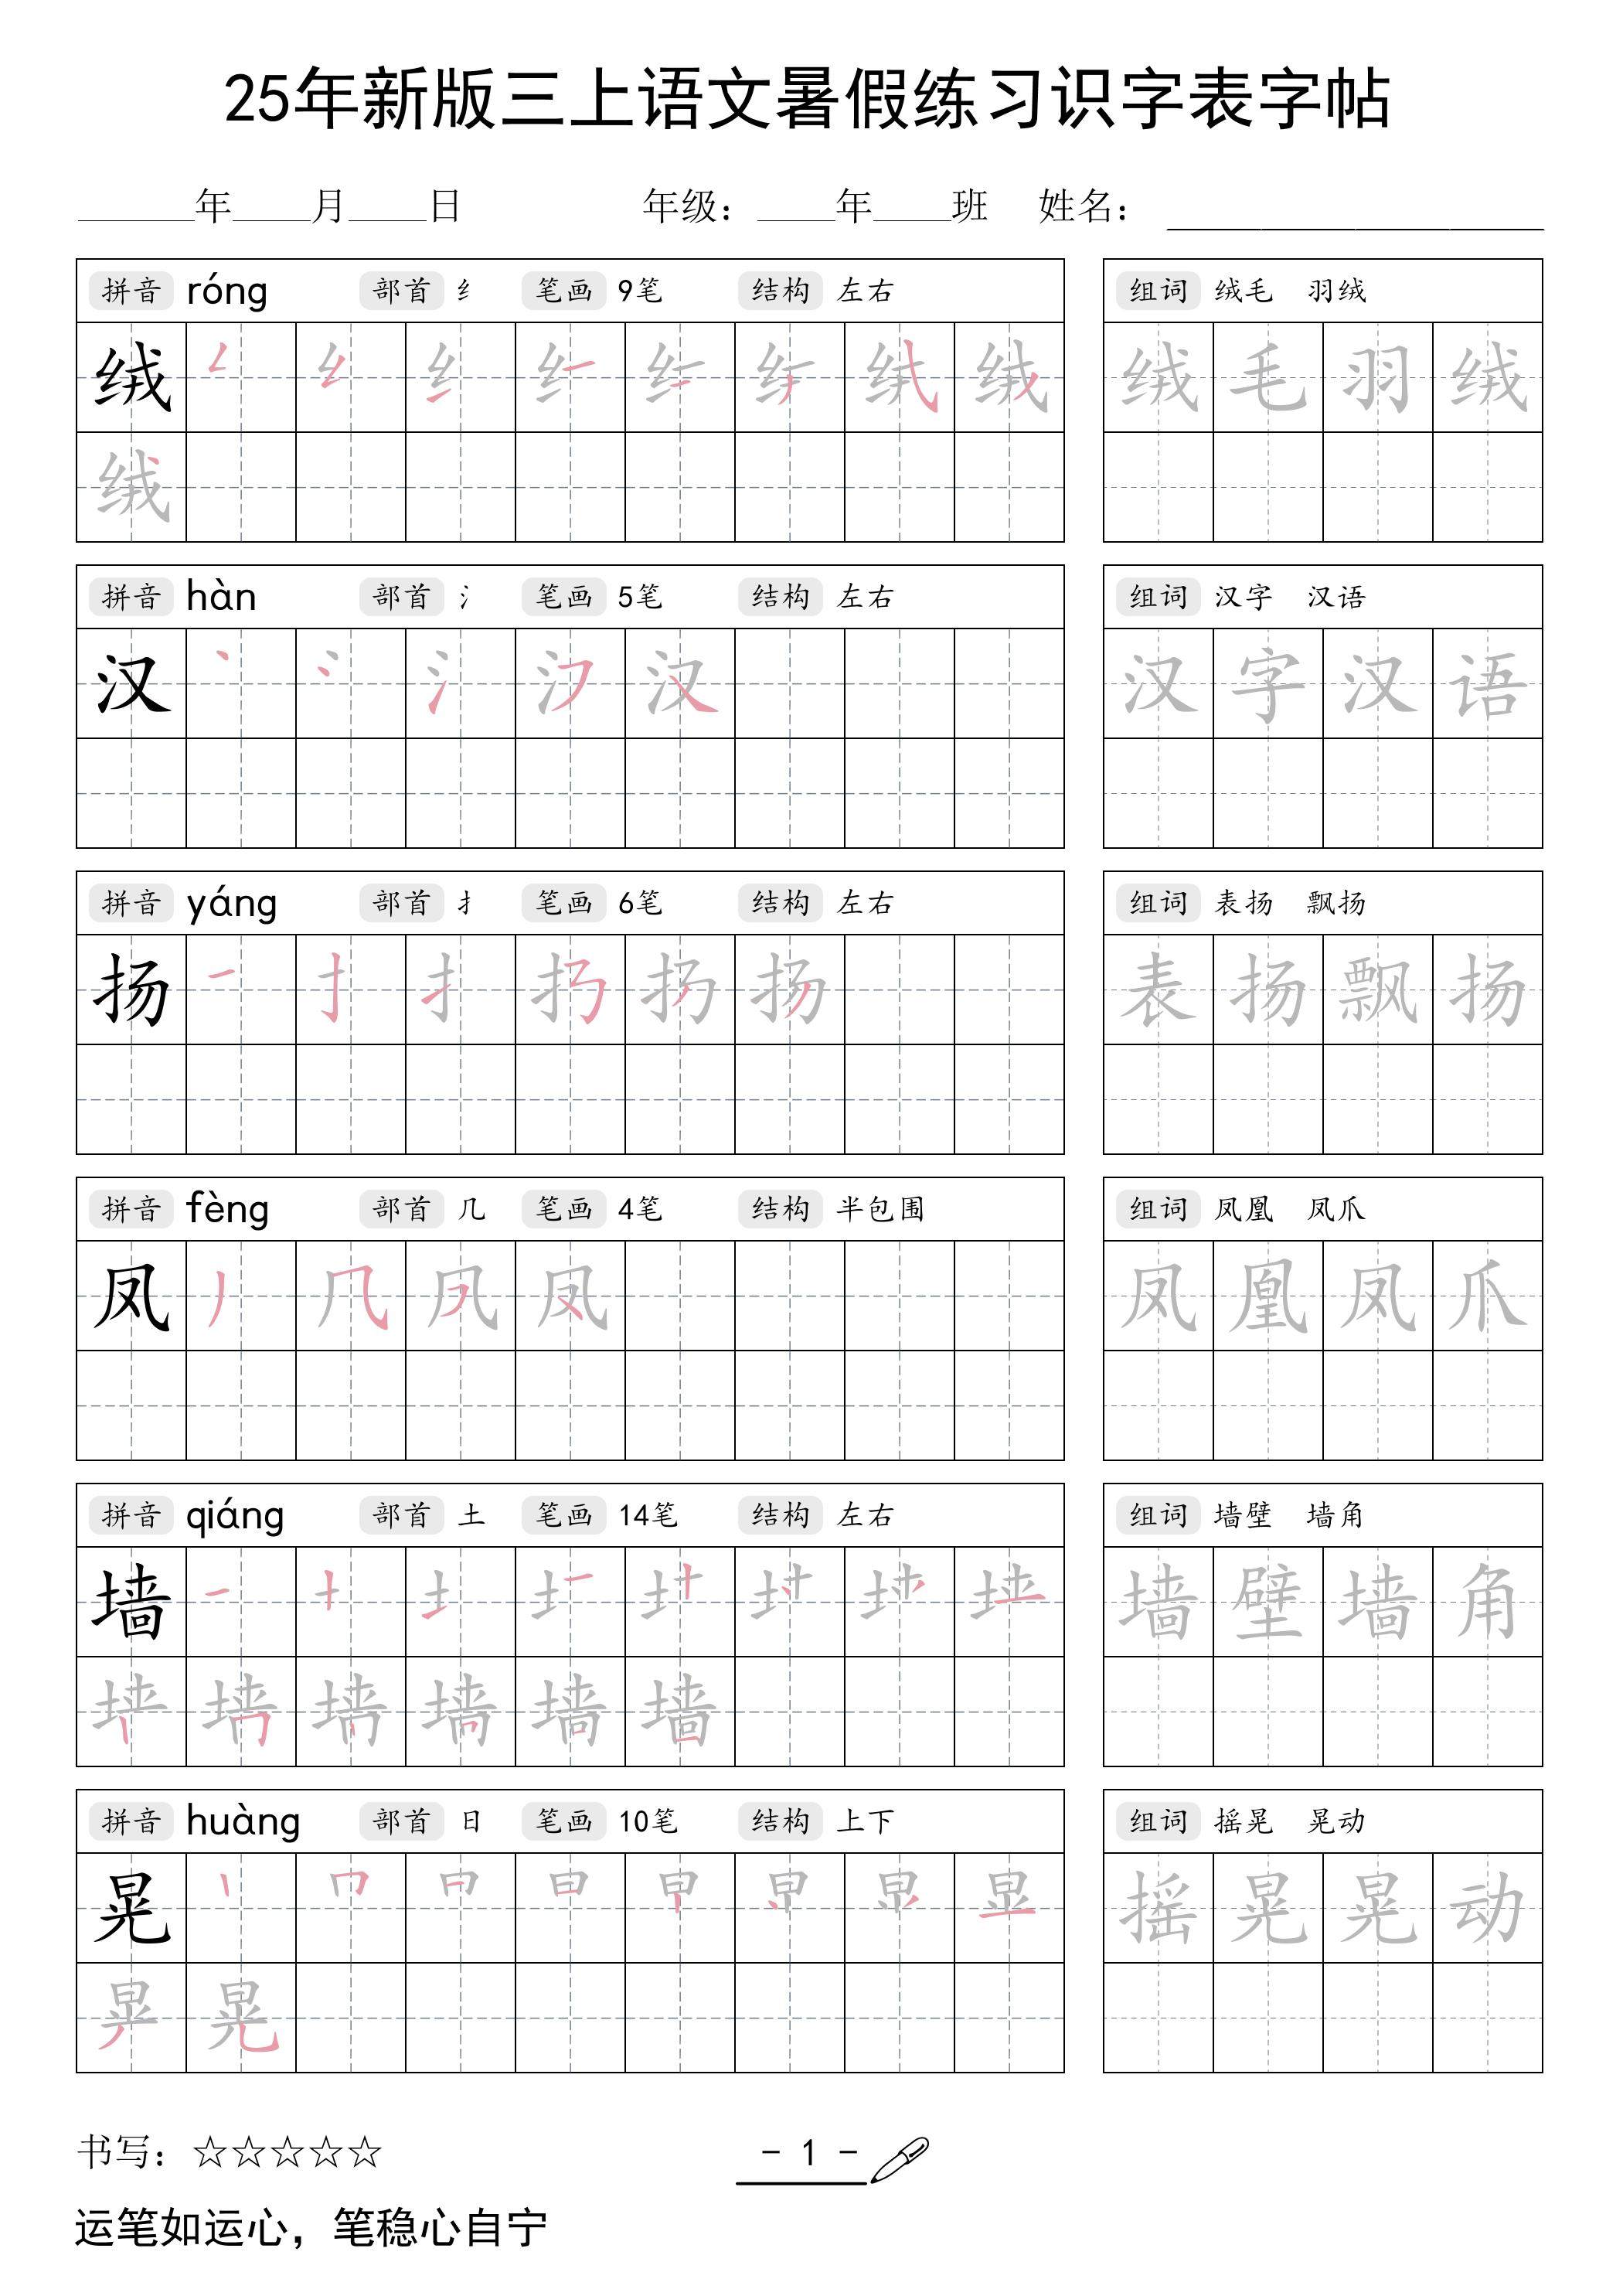 25年新版三上语文暑假练习识字表字帖
______年____月____日 年级：____年____班 姓名：
拼音 róng 部首 纟 笔画 9笔 结构 左右
组词 绒毛 羽绒
绒
绒 毛 羽 绒
绒
拼音 hàn 部首 氵 笔画 5笔 结构 左右
组词 汉字 汉语
汉
汉 字 汉 语
拼音 yáng 部首 扌 笔画 6笔 结构 左右
组词 表扬 飘扬
扬
表 扬 飘 扬
拼音 fèng 部首 几 笔画 4笔 结构 半包围
组词 凤凰 凤爪
凤
凤 凰 凤 爪
拼音 qiáng 部首 土 笔画 14笔 结构 左右
组词 墙壁 墙角
墙
墙 壁 墙 角
墙
拼音 huàng 部首 日 笔画 10笔 结构 上下
组词 摇晃 晃动
晃
摇 晃 晃 动
晃
书写：☆☆☆☆☆
- 1 -
运笔如运心，笔稳心自宁